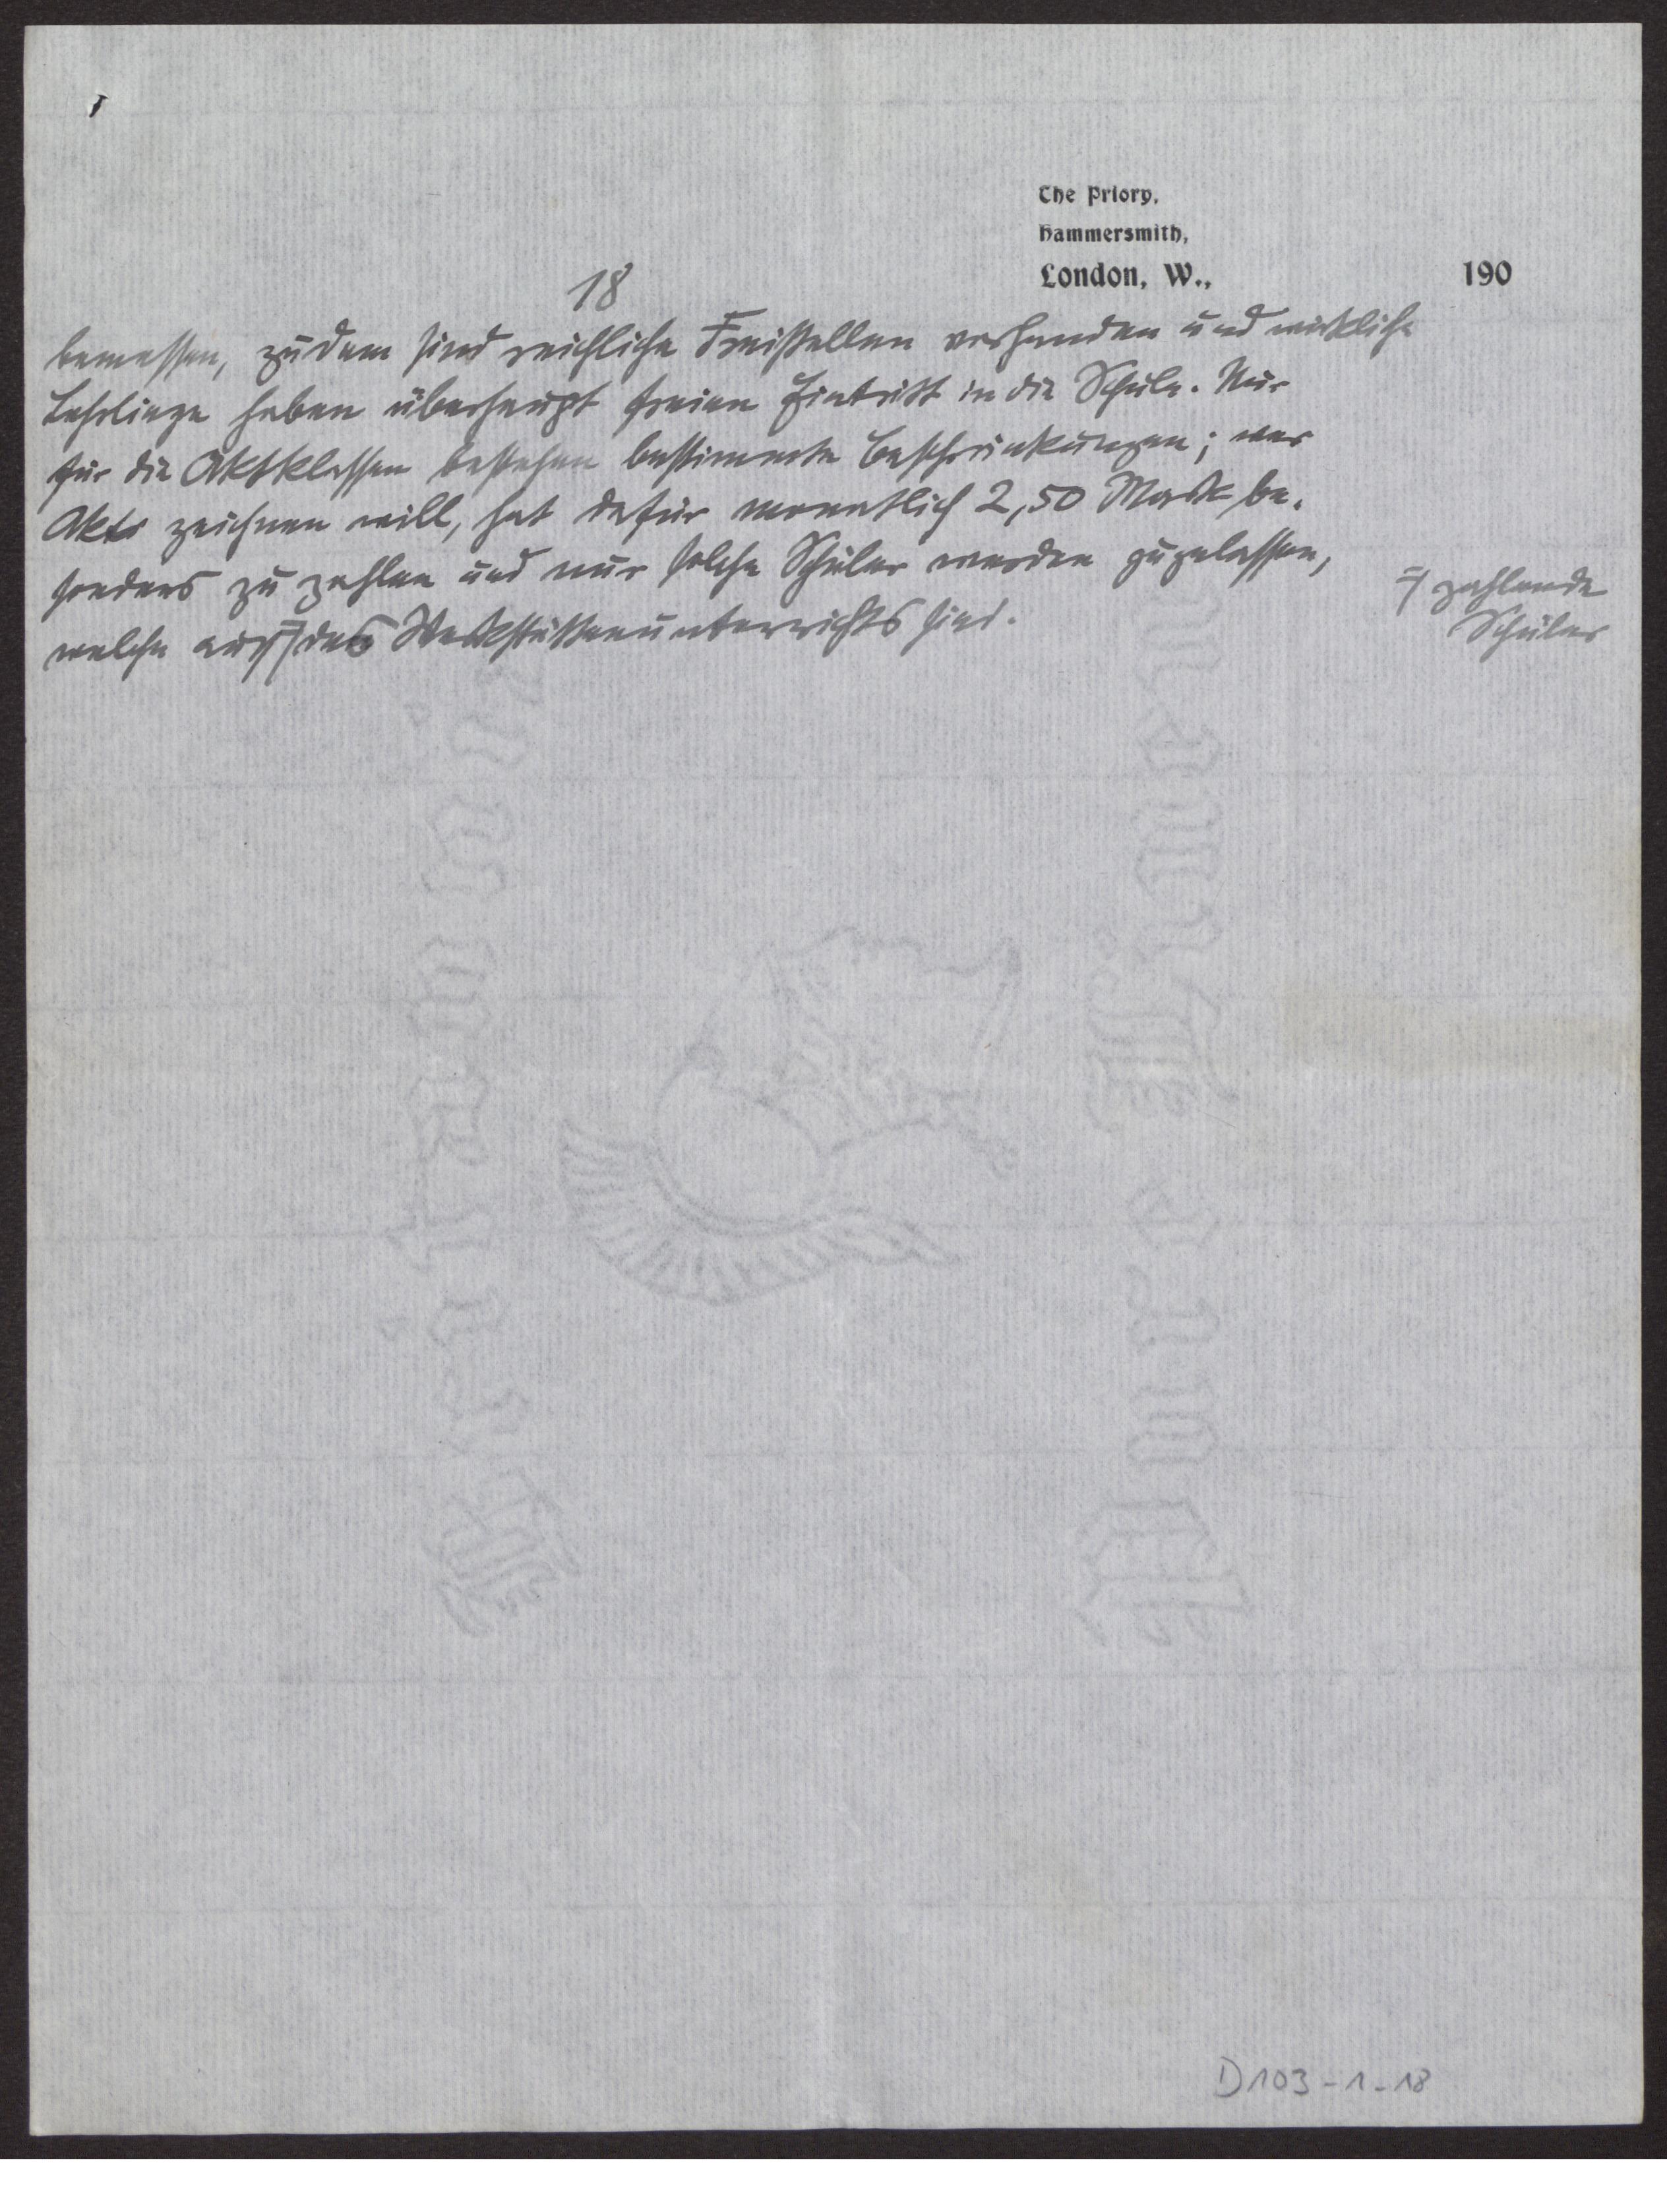 The Priory,
Hammersmith,
London, W., 190
18
bemessen, zudem sind reichliche Freistellen vorhanden und wirkliche
Lehrlinge haben überhaupt freien Eintritt in die Schule. Nur
für die Aktklassen bestehen bestimmte Beschränkungen; wer
Akte zeichnen will, hat dafür monatlich 2,50 Mark be-
sonders zu zahlen und nur solche Schüler werden zugelassen,
welche auch des Werkstättenunterrichts sind.
zahlende
Schüler
D 103 - 1 - 18